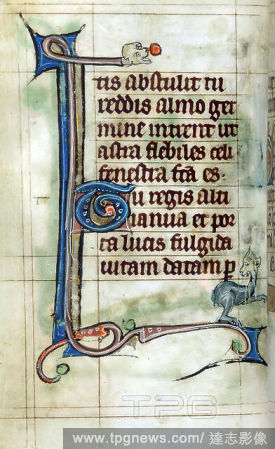 tis abstulit tu
reddis almo ger
mine intrent ut
astra flebiles celi
fenestra fca es.
Tu regis alti
ianua et por
ta lucis fulgida
uitam datam p
TPG
www.tpgnews.com/達志影像